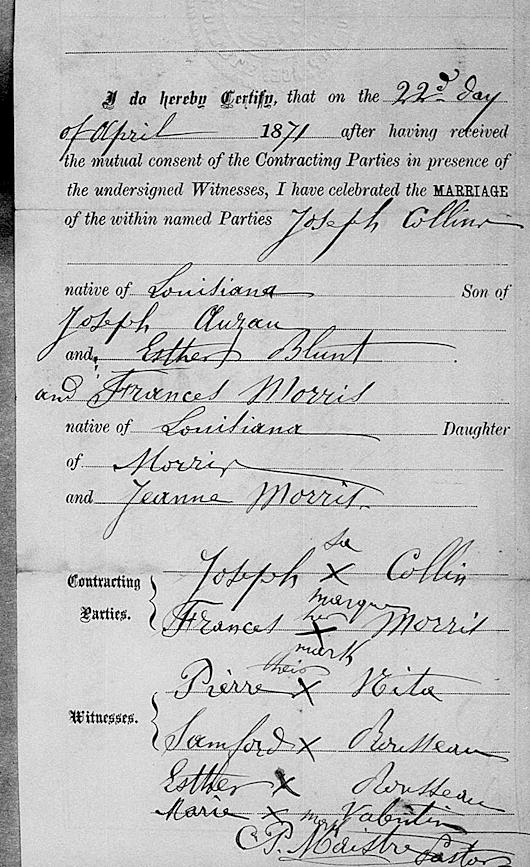 I do hereby Certify, that on the 22d day
of April 1871 after having received
the mutual consent of the Contracting Parties in presence of
the undersigned Witnesses, I have celebrated the MARRIAGE
of the within named Parties Joseph Collins
native of Louisiana Son of
Joseph Auzau
and Esther Blunt
and Frances Morris
native of Louisiana Daughter
of Morris
and Jeanne Morris.
sa
Contracting Parties. Joseph X Collin
marque
her
Frances X Morris
mark
their
Witnesses. Pierre X Nita
Samford X Rousseau
Esther X Rousseau
Marie X mark Valentin
C. P. Maistre Pastor